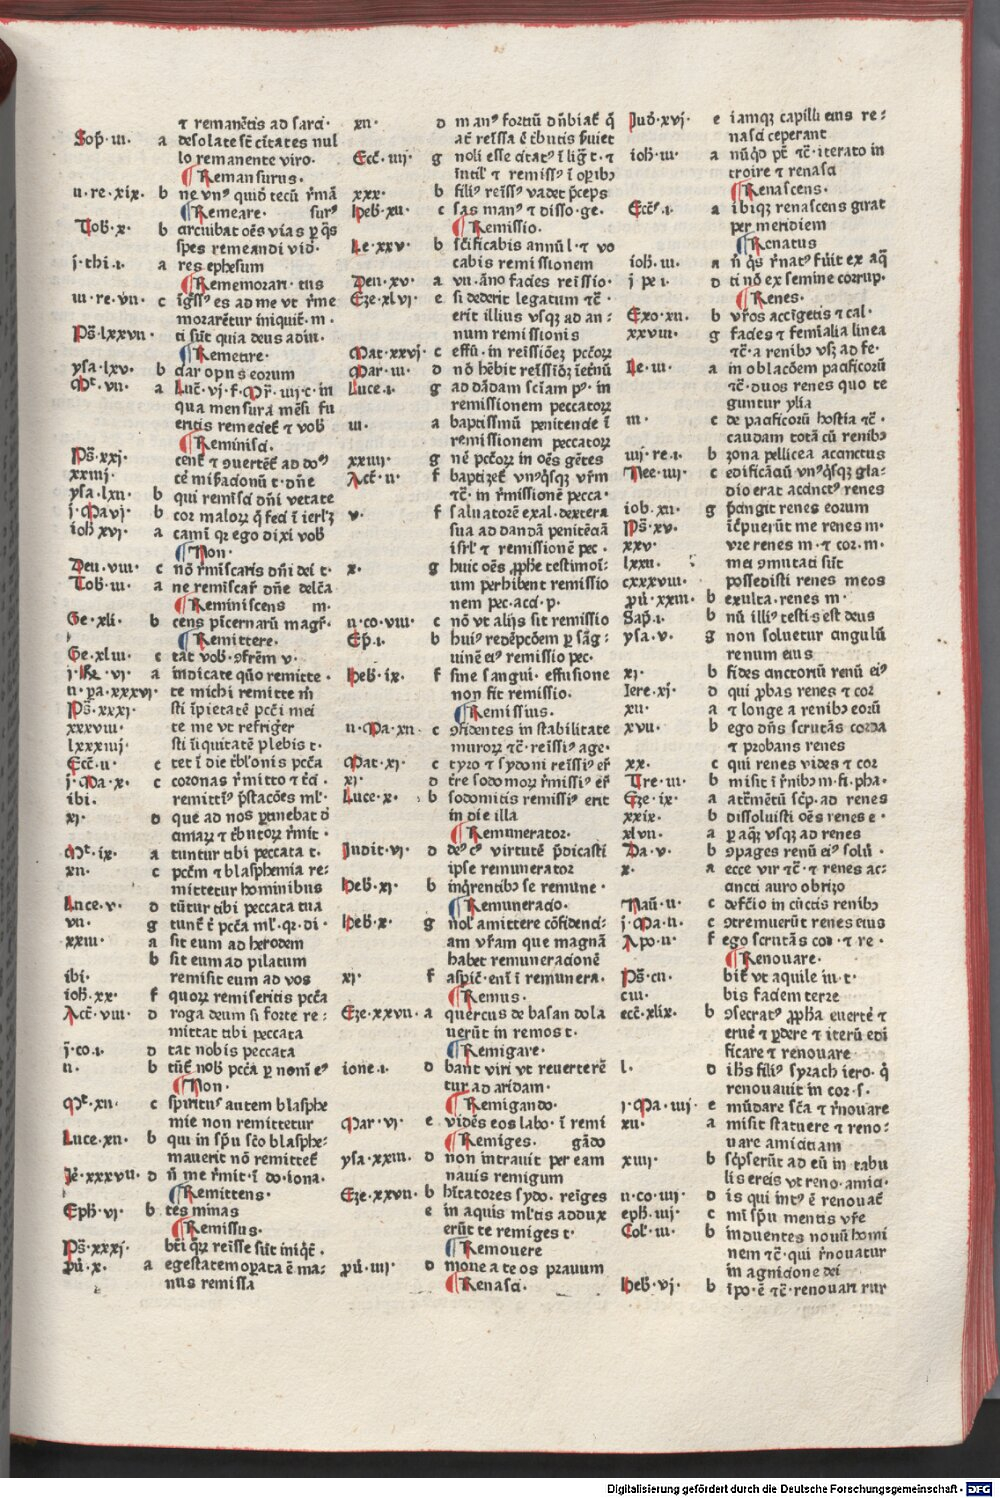 ⁊ remanētis ad farci·
Soph·iii· a desolate st̄ ciītates nul
lo remanente viro·
¶Remansurus·
ii·re·xix· b ne vnꝰ quidē tecū r̄mā
¶Remeare· surꝰ
Tob·x· b circuibat oēs vias
spes remeandi vid·
j·thi·i· a res ephesum
¶Rememorari· tus
iii·re·vii· c es ad me vt r̄me
moraretur iniquit̄·m·
Ps̄·lxxvii· ti sūt quia deus adiu·
¶Remetire·
ysa·lxv· b dar opus eorum
Mt̄·vii· a Luc̄·vj·f·Mr̄·iiij·c·in
qua mensura mēsi fu
eritis remeciet̄ ⁊ vob̄
¶Reminisci·
Ps̄·xxj· cent̄ ⁊ ꝯuertēt̄ ad doꝰ
xxiiij· cē mis̄acionū t·dn̄e
ysa·lxii· b qui remīsci dn̄i vetate
j·Ma vj· b cor malorꝝ q̄ feci ī ierlꝫ
ioh̄ xvj· a camī qꝛ ego dixi vob̄
¶Non·
Deu·viii· c nō r̄miscaris dn̄i dei t·
Tob·iii· a ne remīscar̄ dn̄e delc̄a
¶Reminiscens m·
Ge·xli· b cens pīcernarū magr̄·
¶Remittere·
Ge·xliii· c tat vob̄·ꝯfrēm v·
vj· a indicate quo remitte·
ii·pa·xxxvj· te michi remitte m̄
Ps̄·xxxj· sti īpietatē pcc̄i mei
xxxviii· te me vt refriḡer
lxxxiiij· sti īiquitatē plebis t·
Ecc̄·ii· c tet ī die
j·Ma·x· c coronas r̄mitto ⁊
ibi· remittīꝰ p̄stacōes ml̄·
xj· d que ad nos ꝑtinebat ō
amarꝝ ⁊ t̄butorꝝ r̄mit·
Mt̄·ix· a tuntur tibi peccata t·
xii· c pcc̄m ⁊ blasphemia re-
mittetur hominibus
Luce·v· d tūtur tibi peccata tua
vii· g tunt̄ ē pcc̄a ml̄·qꝫ·di·
xxiii· a sit eum ad herodem
b sit eum ad pilatum
ibi· remisit eum ad vos
ioh̄·xx· f quorꝝ remiseritis pcc̄a
Act̄·viii· d roga deum si forte re:
mittat tibi peccata
j·co·i· d tat nobis peccata
ii· b tūt̄ nob̄ pcc̄a ꝑ nom̄ eꝰ
¶Non·
Mt̄·xii· c spiritus autem blasphe
mie non remittetur
Luce·xii· b qui in sp̄u sc̄o blasphe:
mauerit nō remittet̄
Je·xxxvii· d n̄ me r̄mit·ī do·iona·
¶Remittens·
Eph̄·vj· b tes minas
¶Remissus·
Ps̄·xxxj· bt̄i qꝝ reīsse sūt iniq̄t̄·
ꝓu·x· a egestatem oꝑata ē ma:
nus remissa
xii· d manꝰ fortiū dn̄biat̄ q̄
at̄ reīssa ē t̄butis s̄uiet
Ecc̄·iiij· g noli esse citatꝰ ī liḡt·⁊
īutil̄ ⁊ remissꝰ ī oꝑibꝫ
xxx· b filiꝰ reīssꝰ vadet p̄ceps
heb̄·xii· c sas manꝰ ⁊ disso·ge·
¶Remissio·
Le·xxv· b sc̄ificabis annū l·⁊ vo
cabis remissionem
Den·xv· a vii·āno facies reīssio·
Eze·xlvj· e si dederit legatum ⁊c̄·
erit illius vsqꝫ ad an:
num remissionis
Mat·xxvj· c effū·in reīssiōeꝫ pcc̄orꝝ
Mar·iii· d nō hēbit reīssiōꝫ īet̄nū
Luce·i· g ad dādam sciam pꝰ·in
remissionem peccatorꝝ
iii· a baptismū penitencie ī
remissionem peccatorꝝ
xxiiij· g nē pcc̄orꝝ in oēs gētes
Act̄·ii· f baptizet̄ vnꝰqͥsqꝫ vr̄m
⁊c̄·in r̄missionē pecca·
v· f saluatorē exal·dextera
sua ad dandā penitēciā
isrl̄ ⁊ remissionē pec·
x· g huic oēs ꝓph̄e testimoī·
um perhibent remissio
nem pec·acci·p·
ii·co·viii· c nō vt alijs sit remissio
Eph̄·i· b huiꝰ redēpcōem ꝑ sāg·
uinē eiꝰ remissio pec·
heb̄·ix· f sine sangui·effusione
non fit remissio·
¶Remissius·
ii·Ma·xii· c ꝯfidentes in stabilitate
murorꝝ ⁊c̄·reīssiꝰ age·
Mat·xj· c tyro ⁊ sydoni reīssiꝰ er̄
xj· d tre sodomorꝝ r̄missiꝰ er̄
Luce·x· b sodomitis remissiꝰ erit
in die illa
¶Remunerator·
Judit·vj· d deꝰ cꝰ virtutē p̄dicasti
ipse remunerator
heb̄·xj· b inq̄rentibꝫ se remune·
¶Remuneracio·
heb̄·x· g nol̄ amittere cōfidenci:
am vr̄am que magnā
habet remuneracionē
xj· f aspic̄·enī ī remunera·
¶Remus·
Eze·xxvii· a quercus de basan dola
uerūt in remos t·
¶Remigare·
ione·i· d bant viri vt reuerterē
tur ad aridam·
¶Remigando·
Mar·vj· e vidēs eos labo·ī remi
¶Remiges· gādo
ysa·xxiii· d non intrauit per eam
nauis remigum
Eze·xxvii· b hītatores sydo·reīges
e in aquis ml̄tis addux
erūt te remiges t·
¶Remouere
ꝓu·iiij· d moue a te os prauum
¶Renasci·
Jud·xvj· e iamqꝫ capilli eius re:
nasci ceperant
ioh̄·iii· a nūqͥd pt̄ ⁊c̄·iterato in
troire ⁊ renasci
¶Renascens·
Ecc̄ꝰ·i· a ibiqꝫ renascens girat
per meridiem
¶Renatus
ioh̄·iii· a n̄ qͥs r̄natꝰ fūit ex aq̄
j pe i· d ti nō ex semine corrup·
¶Renes·
Exo·xii· b vr̄os accīgetis ⁊ cal·
xxviii· g facies ⁊ femīalia linea
⁊c̄·a renibꝫ vsꝫ ad fe·
Le·iii· a in oblacōem pacificorū
⁊c̄·duos renes quo te
guntur ylia
iii· c de pacificorū hostia ⁊c̄·
caudam totā cū renibꝫ
iiij·re·i· b zona pellicea accinctus
Nee·iiij· c edificāciū vnꝰqͥsqꝫ gla:
dio erat accinctꝰ renes
iob·xii· g p̄cingit renes eorum
Ps̄·xv· īcͥpuerūt me renes m·
xxv· vre renes m·⁊ cor·m·
lxxii· mei ꝯmutati sūt
cxxxviii· possedisti renes meos
ꝓu·xxiii· b exulta·renes m·
Sap̄·i· b nū illiꝰ testis est deus
ysa·v· g non soluetur cingulū
renum eius
xj· b fides cinctoriū renū eiꝰ
Iere·xj· d qui ꝓbas renes ⁊ cor
xii· a ⁊ longe a renibꝫ eorū
xvii· b ego dn̄s scrutās corda
⁊ probans renes
xx· c qui renes vides ⁊ cor
Tre·iii· b misit ī r̄nibꝫ m·fi·pha·
Eze·ix· a atr̄mētū sc̄p·ad renes
xxix· b dissoluisti oēs renes e·
xlvii· a ꝑ aqꝫ vsqꝫ ad renes
Da·v· b ꝯpages renū eiꝰ solū·
x· a ecce vir ⁊c̄·⁊ renes ac:
cincti auro obrizo
Naū·ii· c defc̄io in cūctis renibꝫ
j·Ma·ii· c ꝯtremuerūt renes eius
Apo·ii· f ego scrutās cor·⁊ re·
¶Renouare·
Ps̄·cii· bit̄ vt aquile iu·t·
ciii· bis faciem terre
ecc̄·xlix· b ꝯsecratꝰ ꝓph̄a euertē ⁊
eruē ⁊ ꝑdere ⁊ iterū edi
ficare ⁊ renouare
l· d ih̄s filiꝰ syrach iero·q̄
renouauit in cor·s·
j·Ma·iiij· e mūdare sc̄a ⁊ r̄nouare
xii· a misit statuere ⁊ reno:
uare amiciciam
xiiij· b sc̄pserūt ad eū in tabu
lis ereis vt reno·amici·
ii·co·iiij· d is qui intꝰ ē renouat̄
eph̄·iiij· c mi sp̄u mentis vr̄e
Col̄·iii· b induentes nouū homi
nem ⁊c̄·qui r̄nouatur
in agnicione dei
heb̄·vj· b īpo·ē ⁊c̄·renouari rur
Digitalisierung gefördert durch die Deutsche Forschungsgemeinschaft - DFG